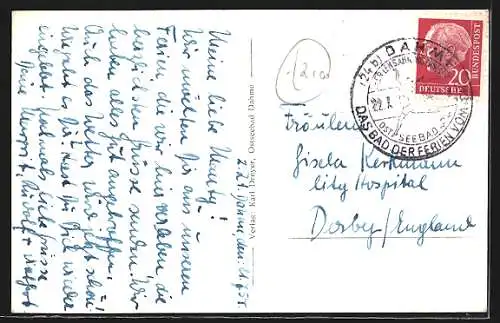 Meine liebe Muncky!
Wir möchten Dir aus unseren
Ferien, die wir hier verleben die
herzlichsten Grüsse senden. Wir
haben alles gut angetroffen.
Auch das Wetter wird jetzt schön.
eingelebt. Vielmals liebe Grüsse
Deine Rudolf +
z. Zt. Dahme, den 21.7.55.
Verlag: Karl Dreyer, Ostseebad Dahme
(24b) DAHME
22.7.
OSTSEEBAD
DAS BAD DER FERIEN VOM
DEUTSCHE
BUNDESPOST
20
Fräulein
Gisela Kerkmann
City Hospital
Derby/England